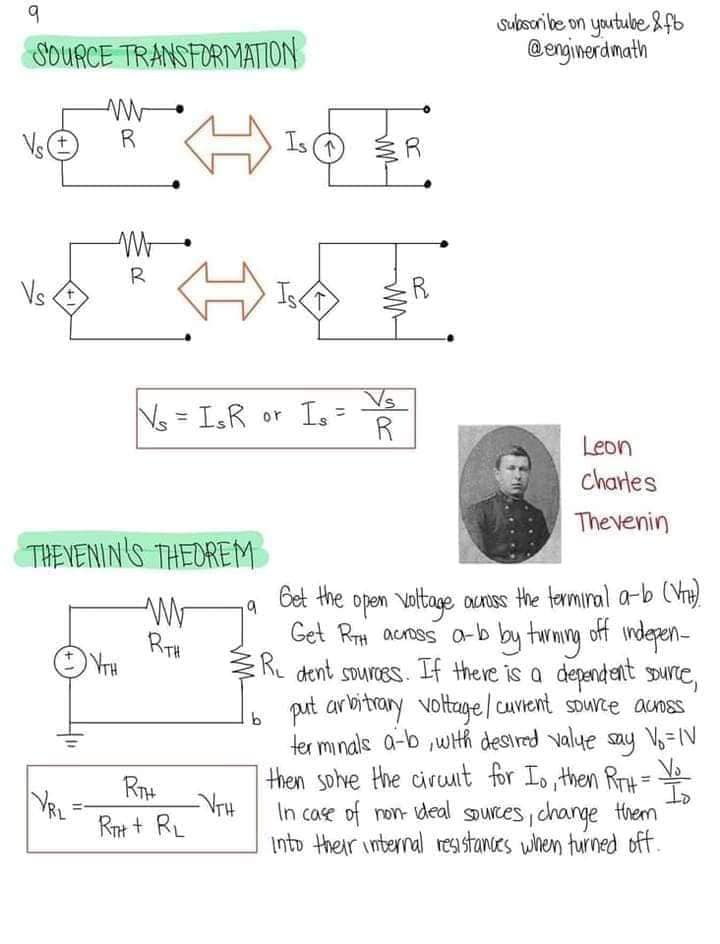 9
subscribe on youtube & fb
@enginerdmath
SOURCE TRANSFORMATION
Vs + - R Is R
Vs + - R Is R
Vs = IsR or Is = Vs/R
Leon
Charles
Thevenin
THEVENIN'S THEOREM
VTH + - RTH a RL b
Get the open voltage across the terminal a-b (VTH).
Get RTH across a-b by turning off indepen-
dent sources. If there is a dependent source,
put arbitrary voltage/current source across
terminals a-b, with desired value say Vo=1V
then solve the circuit for Io, then RTH = Vo/Io
In case of non-ideal sources, change them
into their internal resistances when turned off.
VRL = RTH/(RTH + RL) VTH